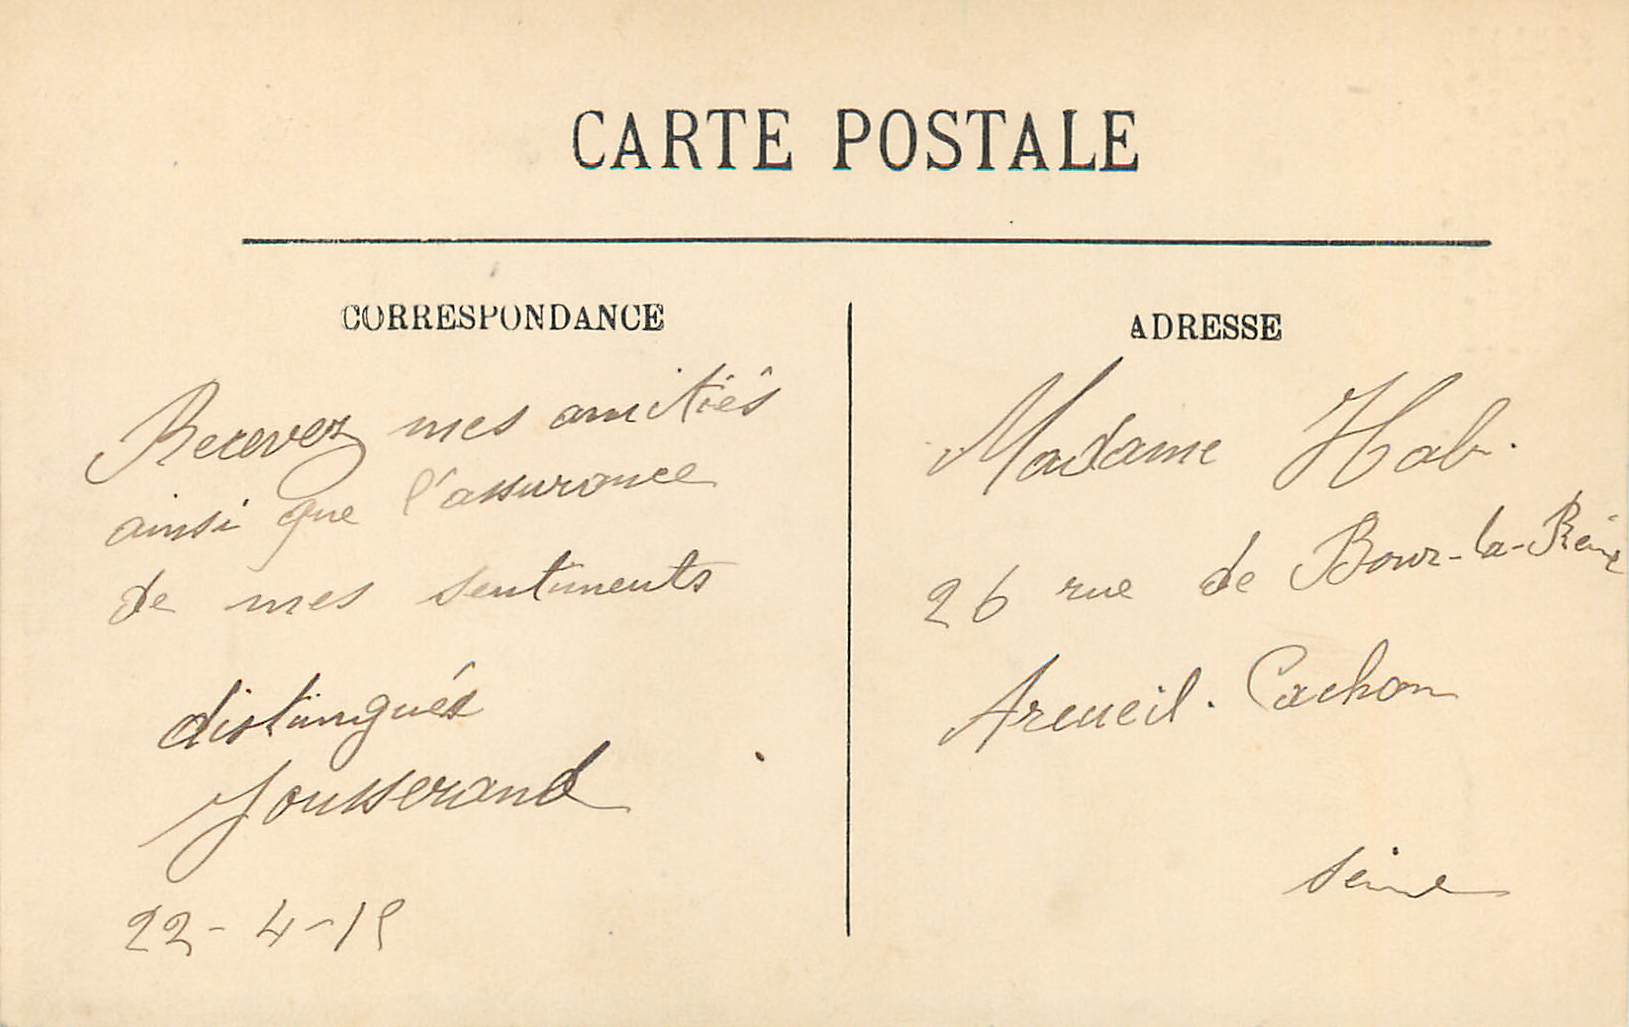 CARTE POSTALE
CORRESPONDANCE
Recevez mes amitiés
ainsi que l'assurance
de mes sentiments
distingués
Jousserand
22-4-15
ADRESSE
Madame Hab.
26 rue de Bour-la-Reine
Arcueil. Cachan
Seine